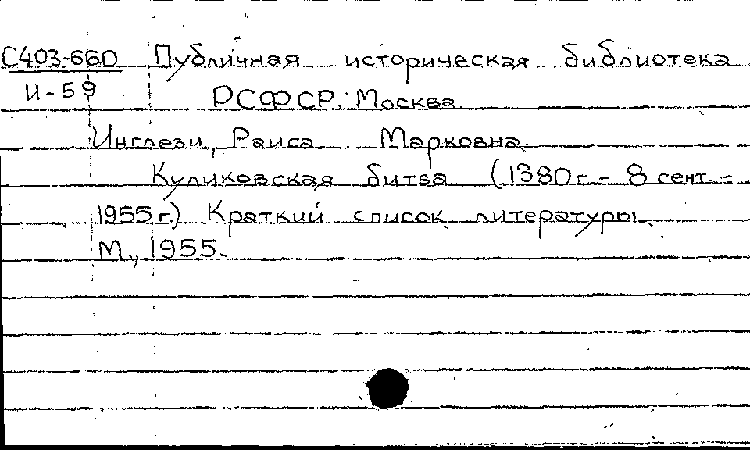 С403-660 Публичная историческая библиотека
И-59 РСФСР. Москва.
Инглези, Раиса Марковна.
Куликовская битва (1380 г. - 8 сент. -
1955 г.) Краткий список литературы.
М., 1955.